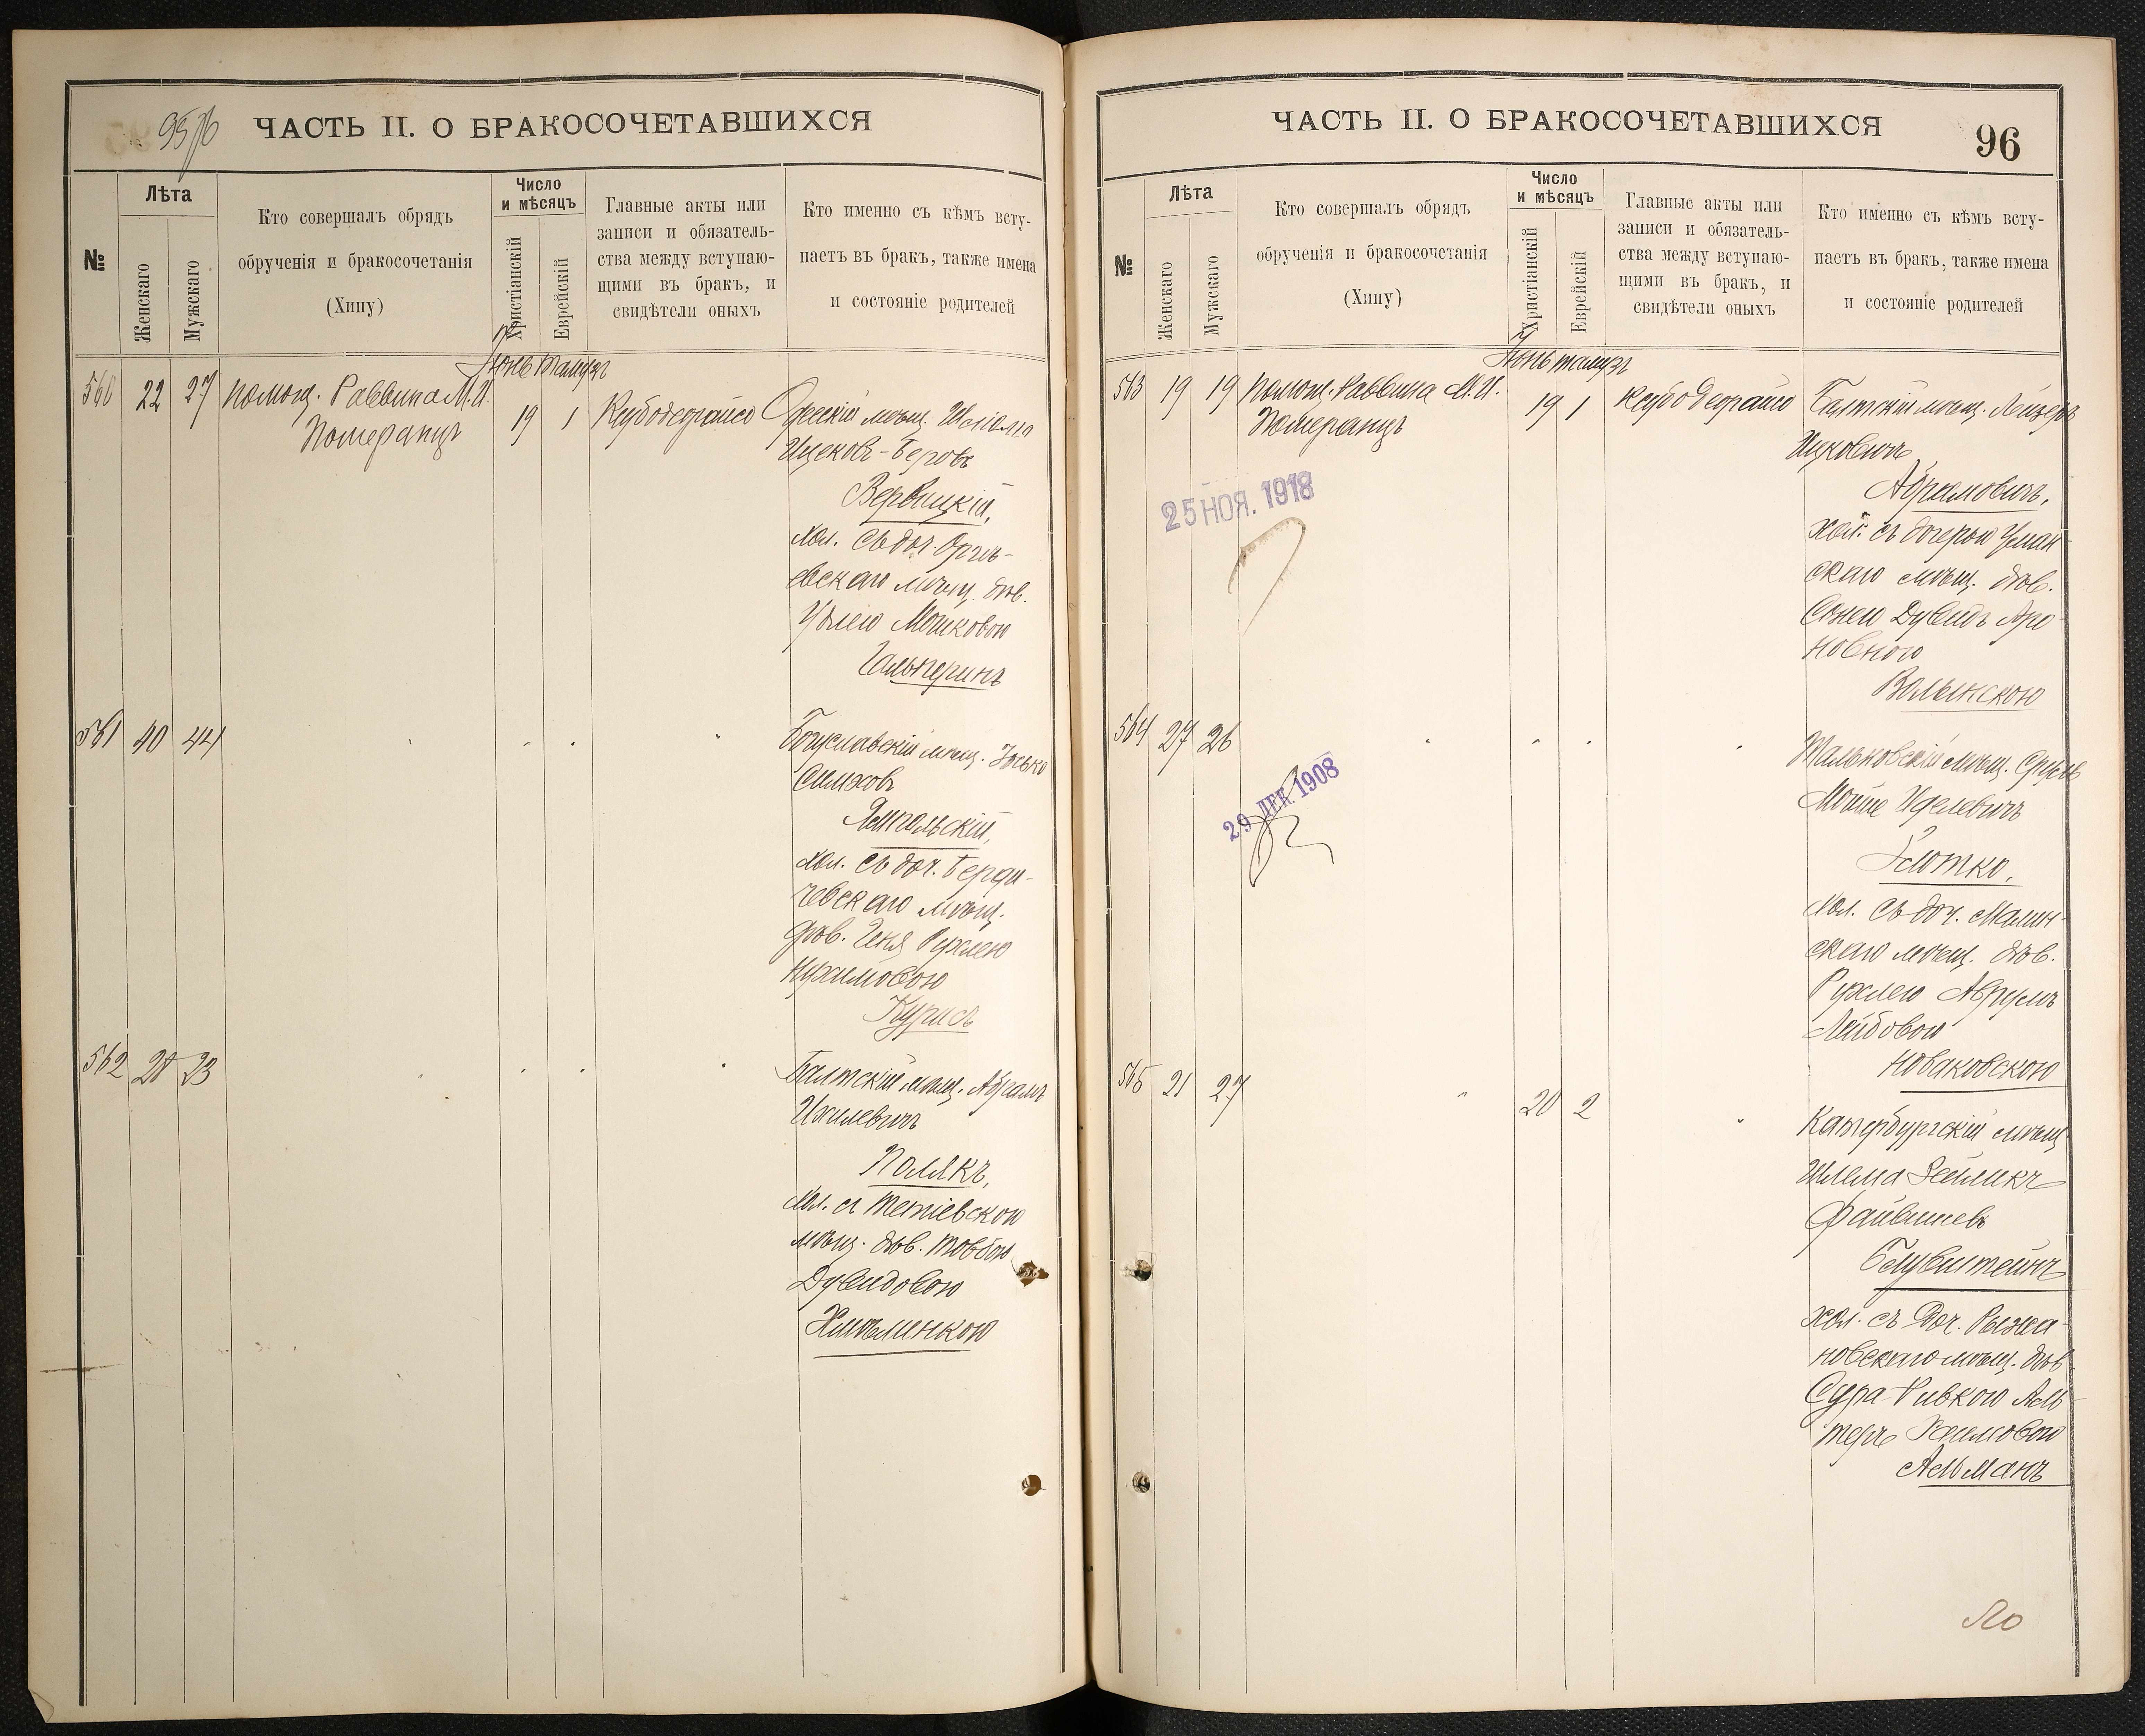 95
ЧАСТЬ II. О БРАКОСОЧЕТАВШИХСЯ
№
Лѣта
Женскаго
Мужскаго
Кто совершалъ обрядъ
обрученія и бракосочетанія
(Хипу)
Число
и мѣсяцъ
Христіанскій
Еврейскій
Главные акты или
записи и обязатель-
ства между вступаю-
щими въ бракъ, и
свидѣтели оныхъ
Кто именно съ кѣмъ всту-
паетъ въ бракъ, также имена
и состояніе родителей
Іюнь Тамузъ
560 22 27 Помощ. Раввина М. И.
Померанцъ
19 1
Одесскій мѣщ.
Ицковъ-Беровъ
Вербицкій,
хол. съ доч. Оргѣ-
евскаго мѣщ. дѣв.
Мошковою
Гальперинъ
561 40 44
Богуславскій мѣщ. Іосько
Симховъ
Ямпольскій,
хол. съ доч. Берди-
чевскаго мѣщ.
дѣв. Геня Рухлею
Нухимовою
562 28 23
Балтскій мѣщ. Абрамъ
Ихилевичъ
Полякъ,
хол. съ Тетіевскою
мѣщ. дѣв. Товбою
Дувидовою
Хмѣлинкою
ЧАСТЬ II. О БРАКОСОЧЕТАВШИХСЯ
96
№
Лѣта
Женскаго
Мужскаго
Кто совершалъ обрядъ
обрученія и бракосочетанія
(Хипу)
Число
и мѣсяцъ
Христіанскій
Еврейскій
Главные акты или
записи и обязатель-
ства между вступаю-
щими въ бракъ, и
свидѣтели оныхъ
Кто именно съ кѣмъ всту-
паетъ въ бракъ, также имена
и состояніе родителей
Іюнь Тамузъ
563 19 19 Помощ. Раввина М. И.
Померанцъ
19 1
Балтскій мѣщ. Лейзеръ
Ицковичъ
Абрамовичъ,
хол. съ дочерью Уман
скаго мѣщ. дѣв.
Сонею Дувидъ Аро
новною
Волынскою
25 НОЯ. 1918
564 27 26
Тальновскій мѣщ. Сруль
Мойше Иделевичъ
Злотко,
хол. съ доч. Малин
скаго мѣщ. дѣв.
Рухлею Аврумъ
Лейбовою
Новаковскою
29 ДЕК. 1908
565 21 27
20 2
Катербургскій мѣщ
Шлема Зейликъ
Файвишевъ
хол. съ доч. Рыжа
новскаго мѣщ. дѣв
Сура-Ривкою Аль
теръ Хаимовою
Альманъ